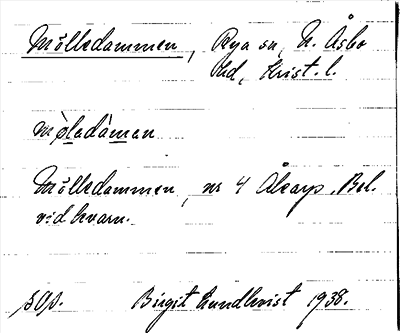 Mölledammen, Rya sn, N. Åsbo
hd, Krist. l.
mòladáman
Mölledammen, nr 4 Åkarp. Bel.
vid kvarn.
s. Op. Birgit Lundkvist 1938.